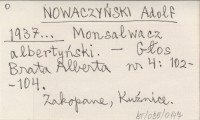 NOWACZYŃSKI Adolf
1937... Monsalwacz
albertyński. — Głos
Brata Alberta nr 4: 102-
-104.
Zakopane, Kuźnice.